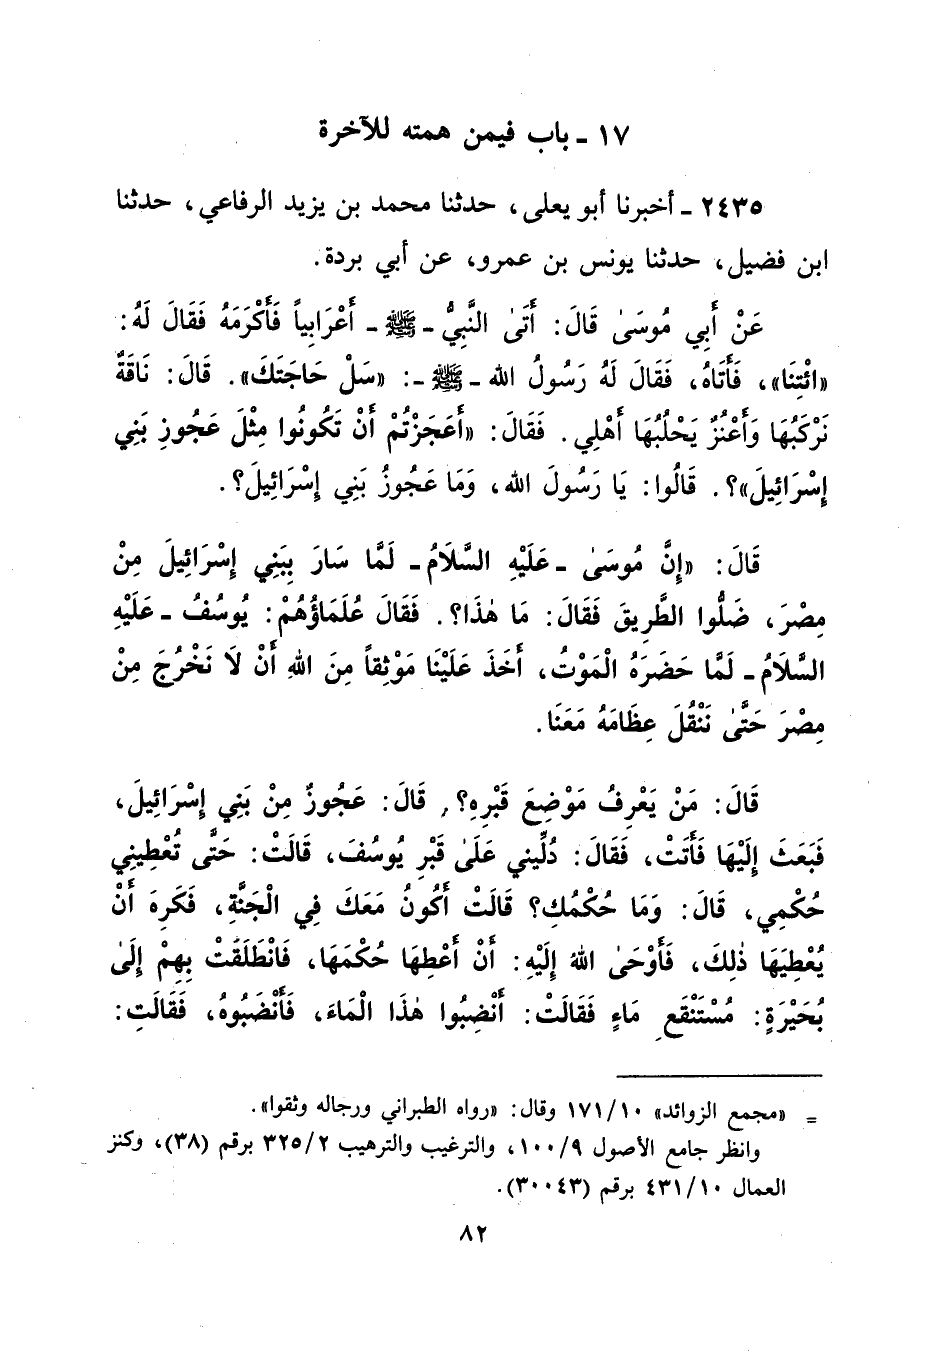 ١٧ ـ باب فيمن همته للآخرة
٢٤٣٥ ـ أخبرنا أبو يعلى، حدثنا محمد بن يزيد الرفاعي، حدثنا
ابن فضيل، حدثنا يونس بن عمرو، عن أبي بردة.
عَنْ أَبِي مُوسَىٰ قَالَ: أَتَىٰ النَّبِيُّ ـ ﷺ ـ أَعْرَابِياً فَأَكْرَمَهُ فَقَالَ لَهُ:
«ائْتِنَا»، فَأَتَاهُ، فَقَالَ لَهُ رَسُولُ الله ـ ﷺ ـ: «سَلْ حَاجَتَكَ». قَالَ: نَاقَةٌ
نَرْكَبُهَا وَأَعْنُزٌ يَحْلُبُهَا أَهْلِي. فَقَالَ: «أَعَجَزْتُمْ أَنْ تَكُونُوا مِثْلَ عَجُوزِ بَنِي
إِسْرَائِيلَ»؟. قَالُوا: يَا رَسُولَ الله، وَمَا عَجُوزُ بَنِي إِسْرَائِيلَ؟.
قَالَ: «إِنَّ مُوسَىٰ ـ عَلَيْهِ السَّلَامُ ـ لَمَّا سَارَ بِبَنِي إِسْرَائِيلَ مِنْ
مِصْرَ، ضَلُّوا الطَّرِيقَ فَقَالَ: مَا هٰذَا؟. فَقَالَ عُلَمَاؤُهُمْ: يُوسُفُ ـ عَلَيْهِ
السَّلَامُ ـ لَمَّا حَضَرَهُ الْمَوْتُ، أَخَذَ عَلَيْنَا مَوْثِقاً مِنَ اللهِ أَنْ لَا نَخْرُجَ مِنْ
مِصْرَ حَتَّىٰ نَنْقُلَ عِظَامَهُ مَعَنَا.
قَالَ: مَنْ يَعْرِفُ مَوْضِعَ قَبْرِهِ؟, قَالَ: عَجُوزٌ مِنْ بَنِي إِسْرَائِيلَ،
فَبَعَثَ إِلَيْهَا فَأَتَتْ، فَقَالَ: دُلِّينِي عَلَىٰ قَبْرِ يُوسُفَ، قَالَتْ: حَتَّى تُعْطِينِي
حُكْمِي، قَالَ: وَمَا حُكْمُكِ؟ قَالَتْ أَكُونُ مَعَكَ فِي الْجَنَّةِ، فَكَرِهَ أَنْ
يُعْطِيَهَا ذٰلِكَ، فَأَوْحَىٰ اللهُ إِلَيْهِ: أَنْ أَعْطِهَا حُكْمَهَا، فَانْطَلَقَتْ بِهِمْ إِلَىٰ
بُحَيْرَةٍ: مُسْتَنْقَعِ مَاءٍ فَقَالَتْ: أَنْضِبُوا هٰذَا الْمَاءَ، فَأَنْضَبُوهُ، فَقَالَتِ:
= «مجمع الزوائد» ١٧١/١٠ وقال: «رواه الطبراني ورجاله وثقوا».
وانظر جامع الأصول ١٠٠/٩، والترغيب والترهيب ٣٢٥/٢ برقم (٣٨)، وكنز
العمال ٤٣١/١٠ برقم (٣٠٠٤٣).
٨٢